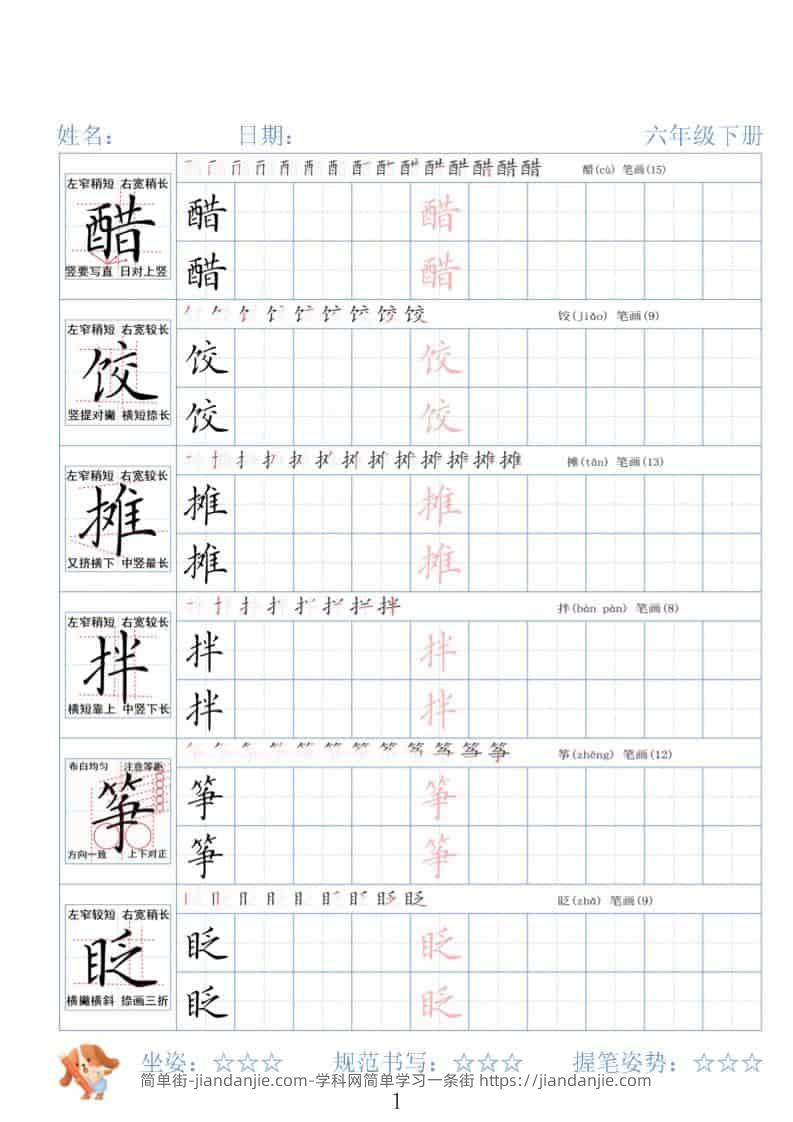 姓名： 日期： 六年级下册
左窄稍短 右宽稍长
醋
竖要写直 日对上竖
醋(cù) 笔画(15)
醋 醋
醋 醋
左窄稍短 右宽较长
饺
竖提对撇 横短捺长
饺(jiǎo) 笔画(9)
饺 饺
饺 饺
左窄稍短 右宽较长
摊
又挤横下 中竖最长
摊(tān) 笔画(13)
摊 摊
摊 摊
左窄稍短 右宽较长
拌
横短靠上 中竖下长
拌(bàn pàn) 笔画(8)
拌 拌
拌 拌
布白均匀 注意等距
筝
方向一致 上下对正
筝(zhēng) 笔画(12)
筝 筝
筝 筝
左窄较短 右宽稍长
眨
横撇横斜 捺画三折
眨(zhǎ) 笔画(9)
眨 眨
眨 眨
坐姿：☆☆☆ 规范书写：☆☆☆ 握笔姿势：☆☆☆
简单街-jiandanjie.com-学科网简单学习一条街 https://jiandanjie.com
1